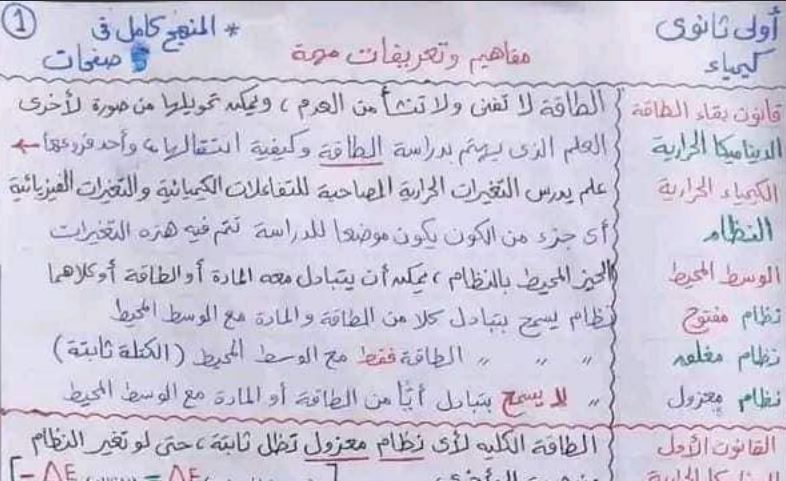 أولى ثانوى
كيمياء
* المنهج كامل فى
5 صفحات
1
مفاهيم وتعريفات مهمة
قانون بقاء الطاقة } الطاقة لا تفنى ولا تنشأ من العدم ، ويمكن تحويلها من صورة لأخرى
الديناميكا الحرارية } العلم الذى يهتم بدراسة الطاقة وكيفية انتقالها وأحد فروعها ←
الكيمياء الحرارية } علم يدرس التغيرات الحرارية المصاحبة للتفاعلات الكيميائية والتغيرات الفيزيائية
النظام } أى جزء من الكون يكون موضعا للدراسة تتم فيه هذه التغيرات
الوسط المحيط } الحيز المحيط بالنظام ، يمكن أن يتبادل معه المادة أو الطاقة أو كلاهما
نظام مفتوح } نظام يسمح بتبادل كلا من الطاقة والمادة مع الوسط المحيط
نظام مغلق } " " " الطاقة فقط مع الوسط المحيط (الكتلة ثابتة)
نظام معزول } " لا يسمح بتبادل أيًا من الطاقة أو المادة مع الوسط المحيط
القانون الأول } الطاقة الكلية لأى نظام معزول تظل ثابتة ، حتى لو تغير النظام
[ - ΔE = ΔE ]